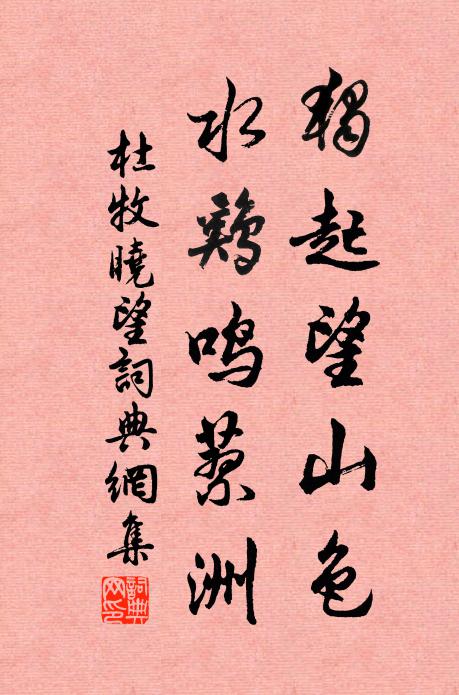 獨起望山色
水鷄鳴蓼洲
杜牧曉望詞典網集
詞典網印